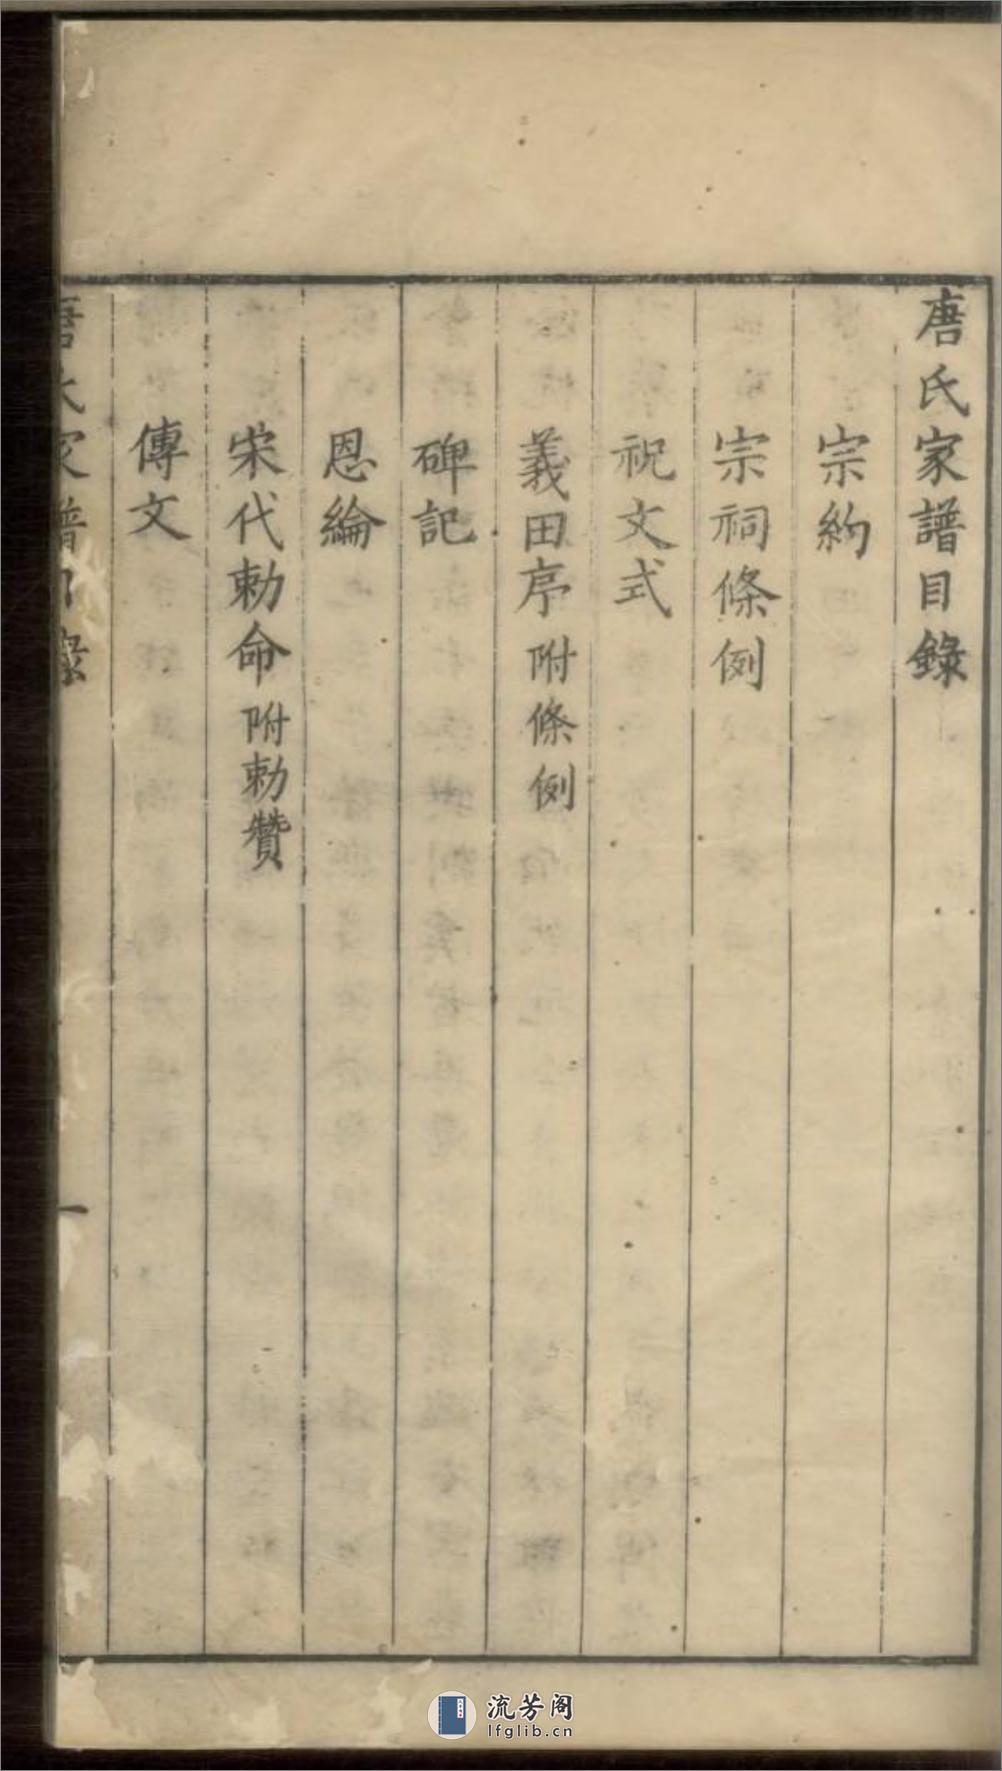 唐氏家譜目錄
宗約
宗祠條例
祝文式
義田序附條例
碑記
恩綸
宋代勅命附勅贊
傳文
唐氏家譜目錄
一
流芳阁
lfglib.cn